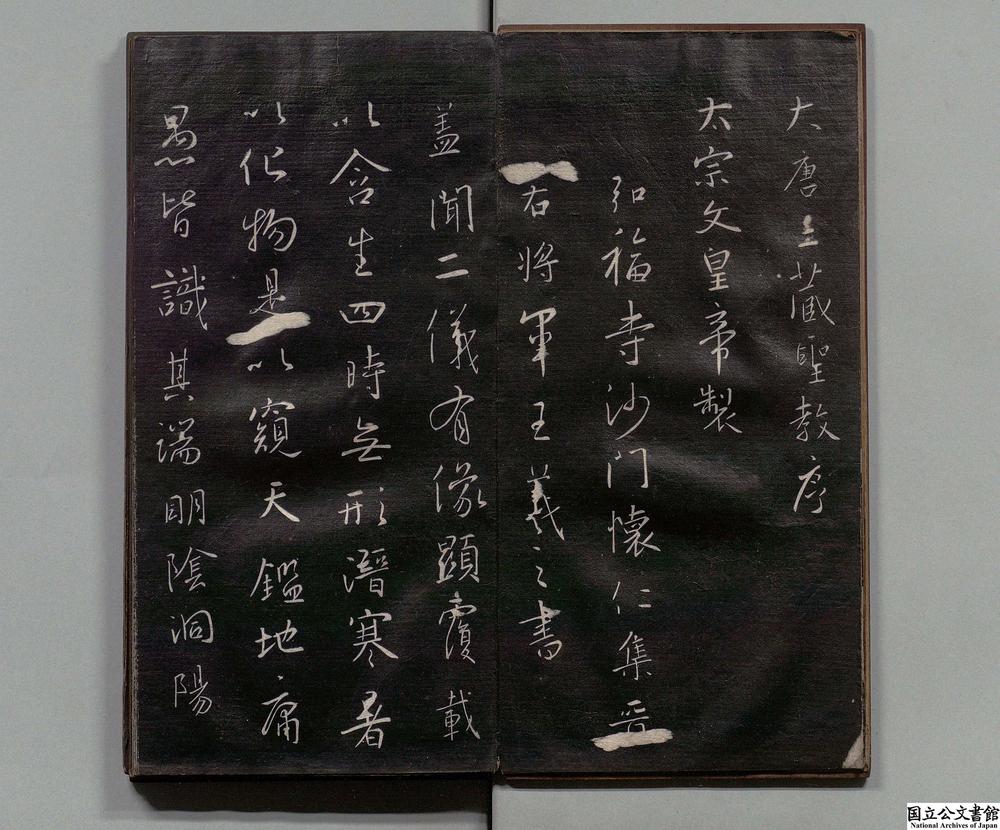 大唐三藏聖教序
太宗文皇帝製
弘福寺沙門懷仁集晉
右將軍王羲之書
蓋聞二儀有像顯覆載
以含生四時無形潛寒暑
以化物是以窺天鑑地庸
愚皆識其端明陰洞陽
国立公文書館
National Archives of Japan